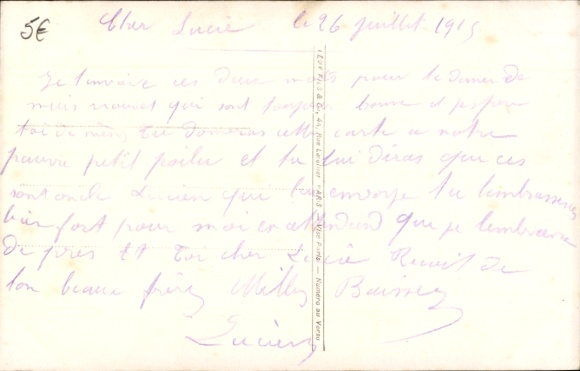 5€
Cher Lucie le 26 juillet 1915
Je t'envoie ces deux mots pour te donner de
mes nouvel qui sont toujour bonne et j'espère
toi de même tu donneras cette carte a notre
pauvre petit poilu et tu lui diras que ces
sont oncle Lucien que lui envoye tu l'embrasseras
bien fort pour moi en attendant que je l'embrasse
de pres Et toi cher Lucie Recoit de
ton beaux frère Mille Baisser
Lucien
LEVY FILS & Cie, 44, Rue Letellier PARIS — Numéro au Verso